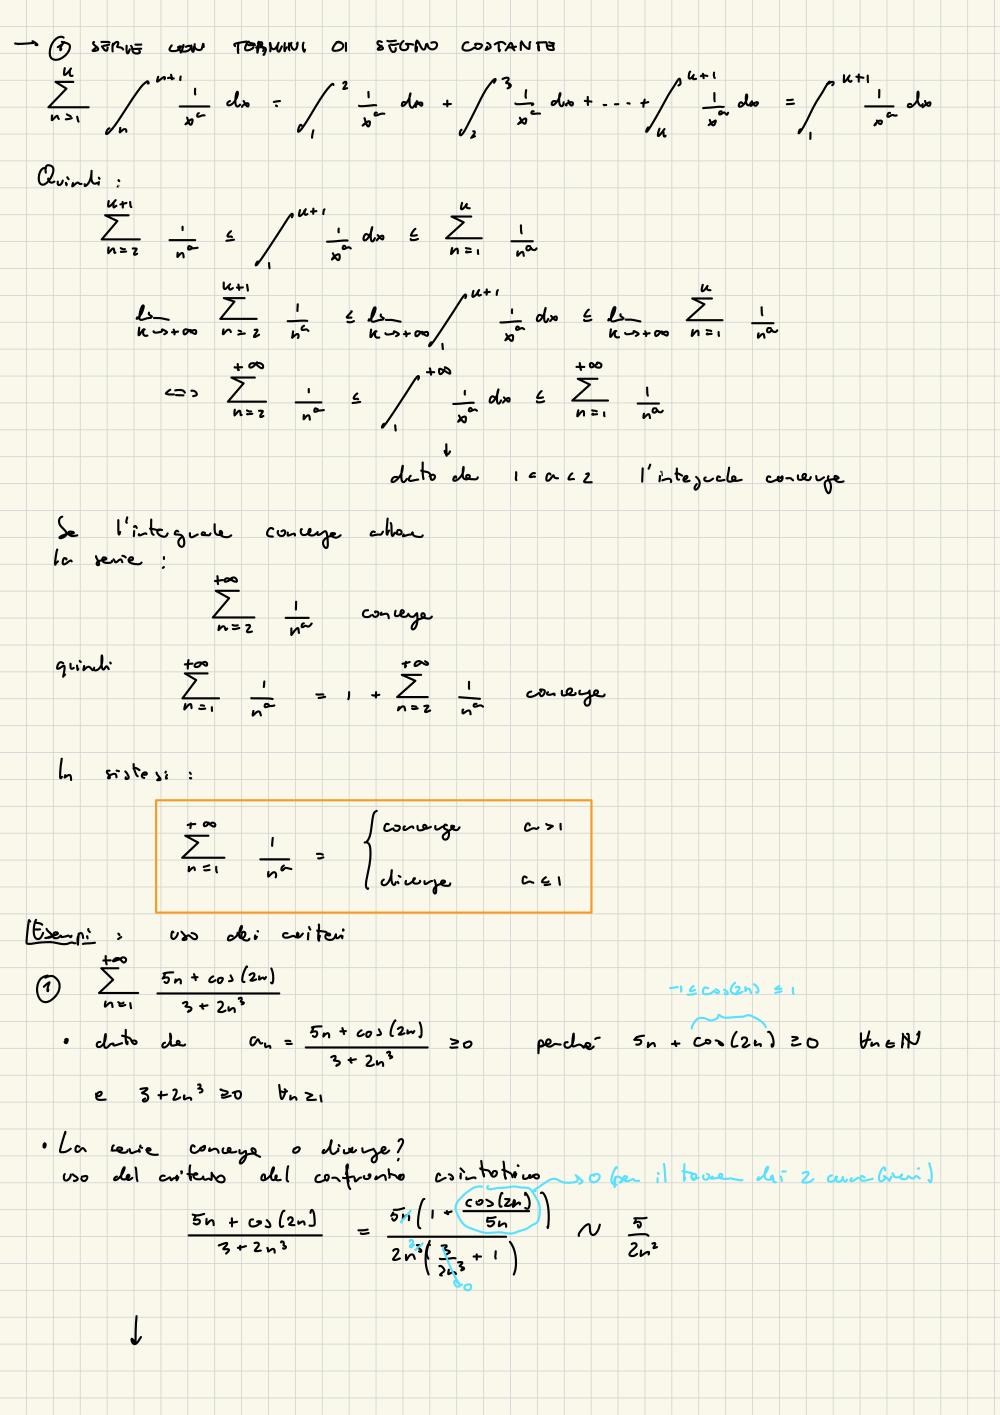 → ① SERIE CON TERMINI DI SEGNO COSTANTE
∑_{n≥1}^{k} ∫_{n}^{n+1} 1/x^a dx = ∫_{1}^{2} 1/x^a dx + ∫_{2}^{3} 1/x^a dx + ... + ∫_{k}^{k+1} 1/x^a dx = ∫_{1}^{k+1} 1/x^a dx
Quindi :
∑_{n=2}^{k+1} 1/n^a ≤ ∫_{1}^{k+1} 1/x^a dx ≤ ∑_{n=1}^{k} 1/n^a
lim_{k→+∞} ∑_{n=2}^{k+1} 1/n^a ≤ lim_{k→+∞} ∫_{1}^{k+1} 1/x^a dx ≤ lim_{k→+∞} ∑_{n=1}^{k} 1/n^a
<=> ∑_{n=2}^{+∞} 1/n^a ≤ ∫_{1}^{+∞} 1/x^a dx ≤ ∑_{n=1}^{+∞} 1/n^a
↓
dato che 1 < a < 2 l'integrale converge
Se l'integrale converge allora
la serie :
∑_{n=2}^{+∞} 1/n^a converge
quindi ∑_{n=1}^{+∞} 1/n^a = 1 + ∑_{n=2}^{+∞} 1/n^a converge
In sistesi :
∑_{n=1}^{+∞} 1/n^a = { converge a > 1
diverge a ≤ 1
Esempi : uso dei criteri
① ∑_{n=1}^{+∞} (5n + cos(2n))/(3 + 2n³)
-1 ≤ cos(2n) ≤ 1
• dato che a_n = (5n + cos(2n))/(3 + 2n³) ≥ 0 perché 5n + cos(2n) ≥ 0 ∀n ∈ ℕ
e 3 + 2n³ ≥ 0 ∀n ≥ 1
• La serie converge o diverge?
uso del criterio del confronto asintotico → 0 (per il teorema dei 2 carabinieri)
(5n + cos(2n))/(3 + 2n³) = (5n (1 + cos(2n)/5n))/(2n³ (3/2n³ + 1)) ~ 5/2n²
→ 0
↓